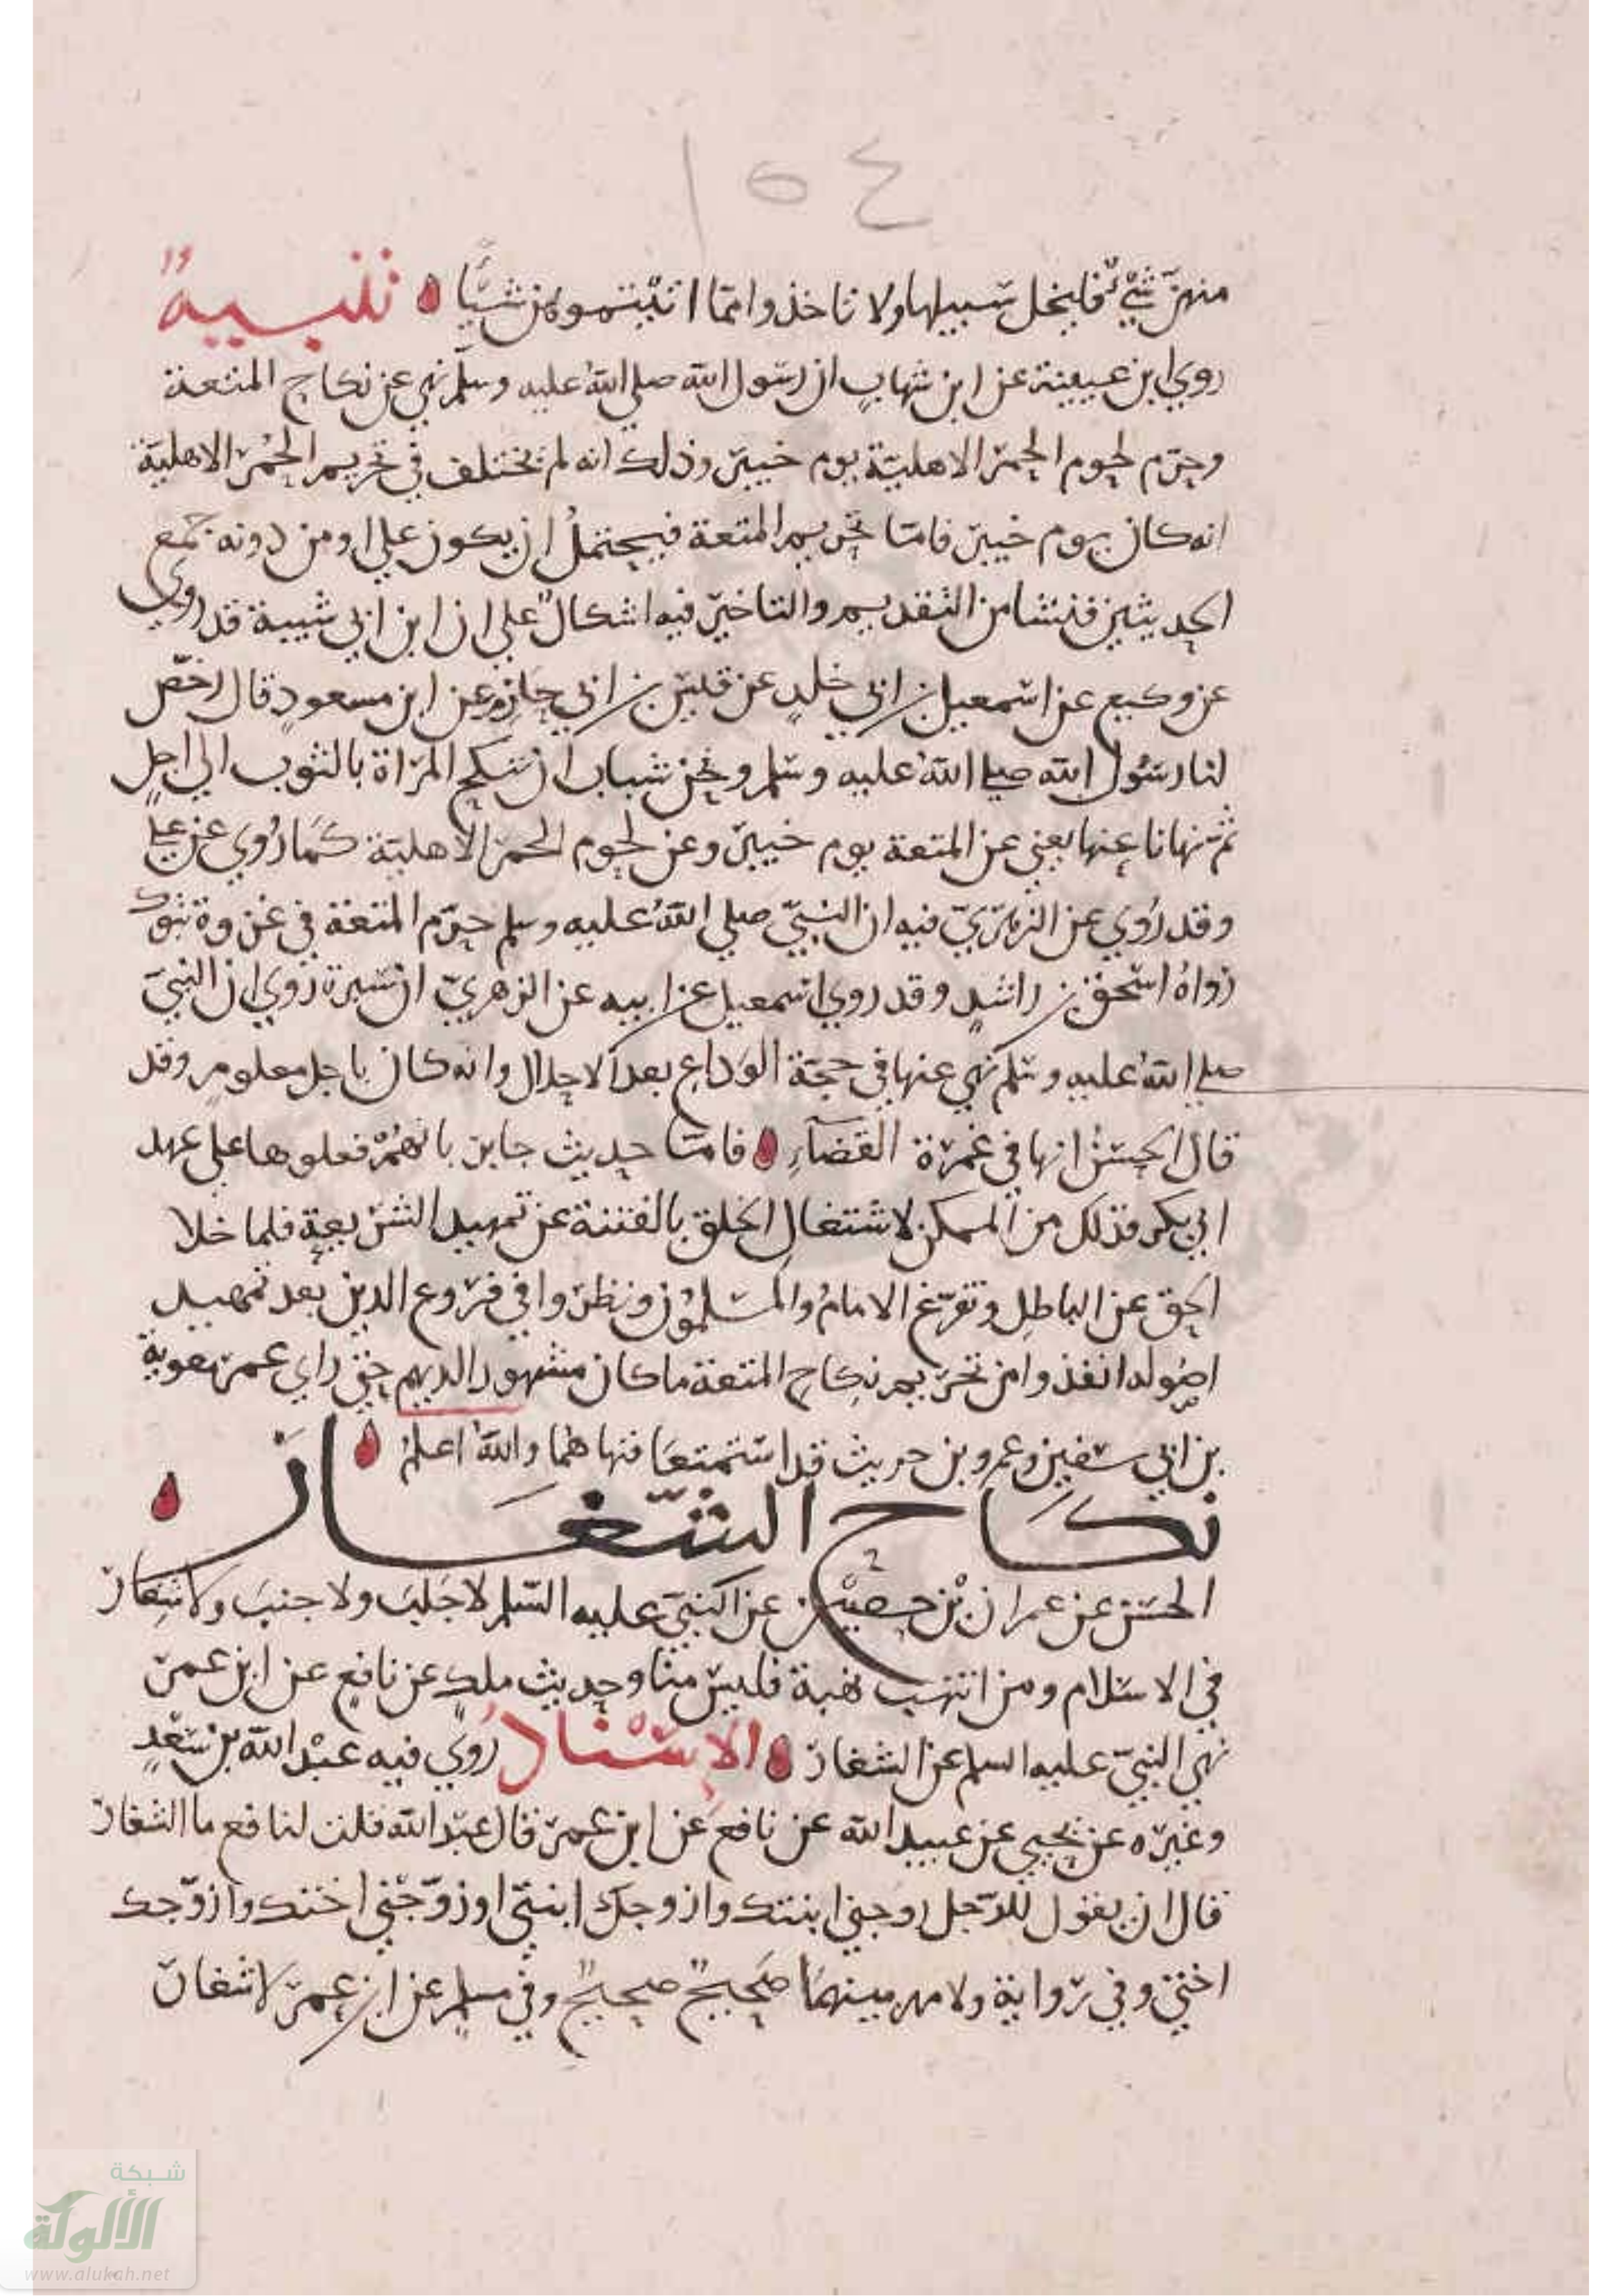 ١٥٤
منهن شيء فليخل سبيلها ولا تاخذوا مما اتيتموهن شيًا تنبيهٌ
روي ابن عيينة عن ابن شهاب ان رسول الله صلي الله عليه وسلم نهي عن نكاح المتعة
وحرم لحوم الحمر الاهلية يوم خيبر وذلك انه لم يختلف في تحريم الحمر الاهلية
انه كان يوم خيبر فاما تحريم المتعة فيحتمل ان يكون علي او من دونه جمع
الحديثين فنشا من التقديم والتاخير فيه اشكال علي ان ابن ابي شيبة قد روي
عن وكيع عن اسمعيل بن ابي خلد عن قيس بن ابي حازم عن ابن مسعود قال رخص
لنا رسول الله صلي الله عليه وسلم ونحن شباب ان ننكح المراة بالثوب الي اجل
ثم نهانا عنها يعني عن المتعة يوم خيبر وعن لحوم الحمر الاهلية كما روي عن علي
وقد روي عن الزهري فيه ان النبي صلي الله عليه وسلم حرم المتعة في غزوة تبوك
رواه اسحق بن راشد وقد روي اسمعيل عن ابيه عن الزهري ان سبرة روي ان النبي
صلي الله عليه وسلم نهي عنها في حجة الوداع بعد الاحلال وانه كان باجل معلوم وقد
قال الحسن انها في عمرة القضاء فاما حديث جابر بانهم فعلوها علي عهد
ابي بكر فذلك من الممكن لاشتغال الخلق بالفتنة عن تمهيد الشريعة فلما خلا
الحق عن الباطل وتفرغ الامام والمسلمون ونظروا في فروع الدين بعد تمهيد
اصوله انفذوا من تحريم نكاح المتعة ما كان مشهورا لديهم حتي راي عمر معوية
بن ابي سفين وعمرو بن حريث قد استمتعا فنهاهما والله اعلم
نكاح الشغار
الحسن عن عمران بن حصين عن النبي عليه السلم لا جلب ولا جنب ولا شغار
في الاسلام ومن انتهب نهبة فليس منا وحديث ملك عن نافع عن ابن عمر
نهي النبي عليه السلم عن الشغار الاسناد روي فيه عبد الله بن سعد
وغيره عن يحيي عن عبيد الله عن نافع عن ابن عمر قال عبد الله قلت لنافع ما الشغار
قال ان يقول للرجل زوجني ابنتك وازوجك ابنتي او زوجني اختك وازوجك
اختي وفي رواية ولا مهر بينهما صحيح صحيح وفي مسلم عن ابن عمر لا شغار
شبكة
الألوكة
www.alukah.net